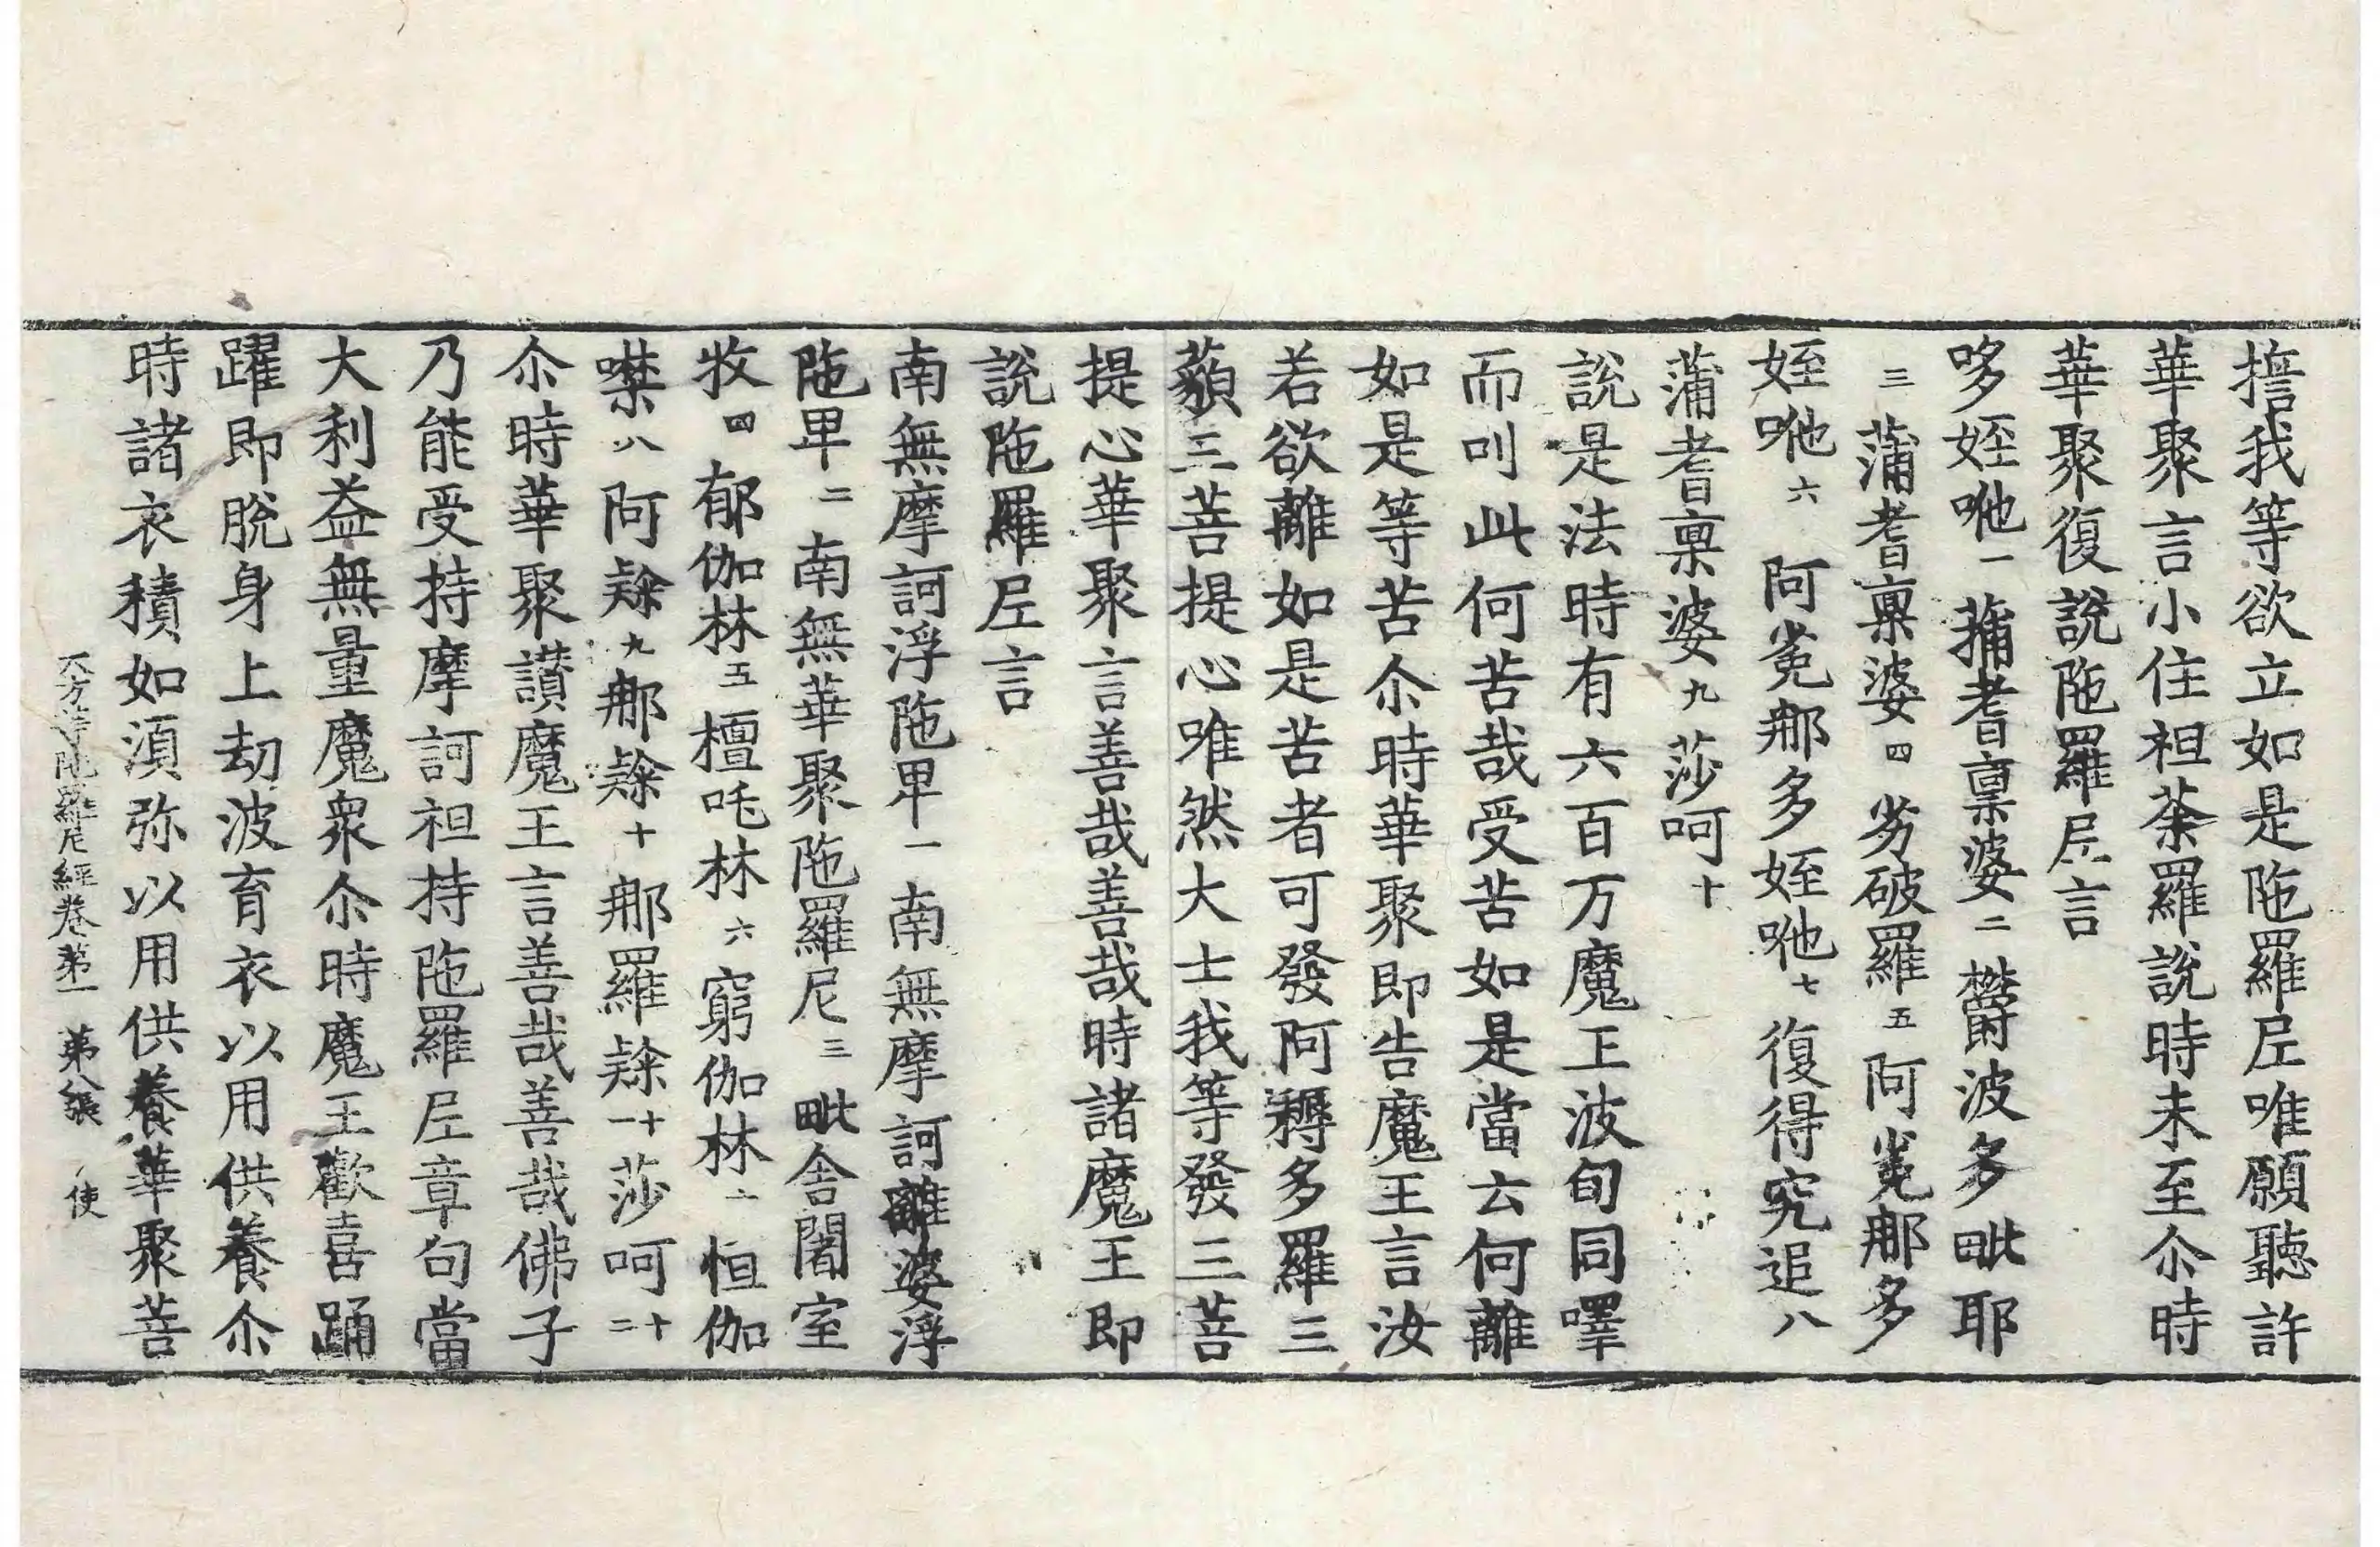 擔我等欲立如是陁羅𡰱唯願聽許
華聚言小住袒荼羅說時未至尒時
華聚復說陁羅𡰱言
哆姪哋一蒱耆禀婆二欝波多毗耶
三蒲耆禀婆四劣破羅五阿㝹那多
姪哋六阿㝹那多姪哋七復得究追八
蒲耆禀婆九莎呵十
說是法時有六百万魔王波旬同嘷
而叫此何苦哉受苦如是當云何離
如是等苦尒時華聚即告魔王言汝
若欲離如是苦者可發阿耨多羅三
藐三菩提心唯然大士我等發三菩
提心華聚言善哉善哉時諸魔王即
說陁羅𡰱言
南無摩訶浮陁卑一南無摩訶離婆浮
陁卑二南無華聚陁羅尼三毗舍闍室
牧四郁伽林五檀吒林六窮伽林七恒伽
噤八阿𨽻九那𨽻十那羅𨽻十一莎呵十二
尒時華聚讃魔王言善哉善哉佛子
乃能受持摩訶袒持陁羅𡰱章句當
大利益無量魔衆尒時魔王歡喜踊
躍即脫身上劫波育衣以用供養尒
時諸衣積如湏弥以用供養華聚菩
大方等陁羅尼經卷第一 第八張 使